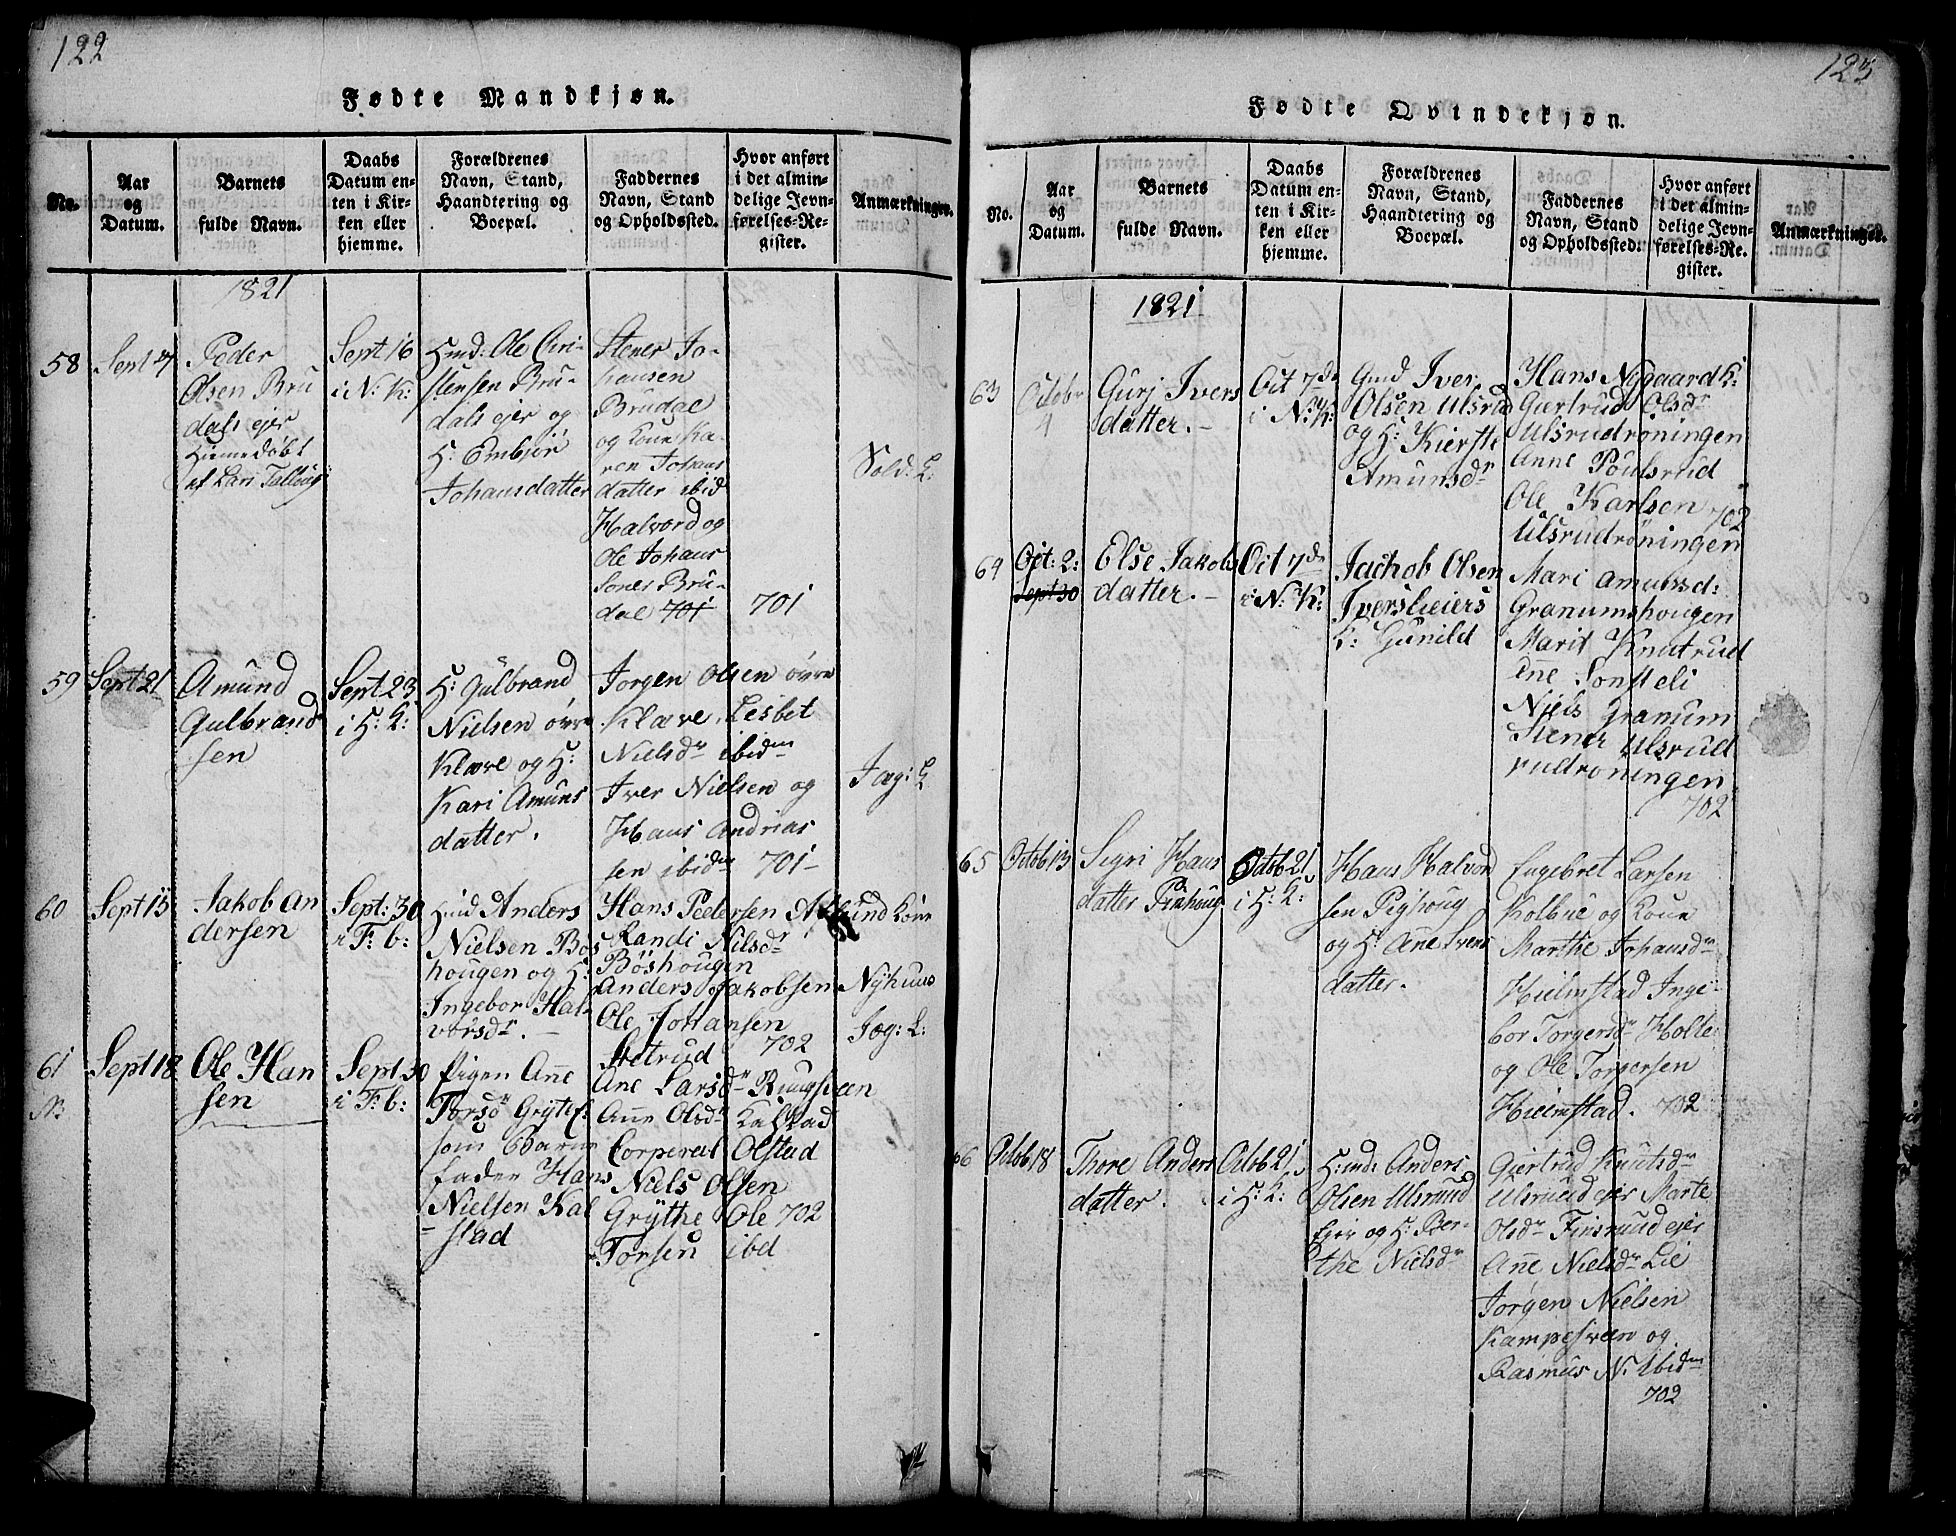 122
Fødte Mandkjøn.
No.
Aar
og
Datum.
Barnets
fulde Navn.
Daabs
Datum en-
ten i Kir-
ken eller
hjemme.
Forældrenes
Navn, Stand,
Haandtering og
Boepæl.
Faddernes
Navn, Stand
og Opholdssted.
Hvor anført
i det almin-
delige Jevn-
førelses-Re-
gister.
Anmærkninger.
1821
58
Sept
Peder
Olsen Bru
dals ejer
Hiemedøbt
af Lars
Sept 16
i N: K:
Hmd: Ole Chri-
stensen Bru-
dals ejer og
H: Embjør
Johansdatter
Stener Jo-
hansen
Brudal
og Kone Ka-
ren Johans
datter ibid
Halvord og
Ole Johans
sønes Bru-
dal 701
701
Sold: L:
59
Sept 21
Amund
Gulbrand
sen
Sept 23
i H: K:
H: Gulbrand
Nielsen øvre
Klæve og H:
Kari Amuns
datter.
Jorgen Olsen øvre
Klæve. Lisbet
Nielsdr ibidm
Iver Nielsen og
Hans Andrias
sen ibidm 701-
Jæg: L
60
Sept 15
Jakob An
dersen
Sept: 30
i F: b:
Hmd Anders
Nielsen Bøs
hougen og H:
Ingebor Hal-
vorsdr. -
Hans Pedersen Aslund Kone
Randi Nilsdr
Bøshougen
Anders Jakobsen Nyhuus
Ole Johansen
Stetrud 702
Jæg: L:
61
N:
Sept 18
Ole Han
sen
Sept 30
i F: b:
Pigen Anne
Torsdr Gryte
som Barne
fader Hans
Nielsen Kal
stad
Ane Larsdr Ringsveen
Anne Olsdr Kalstad
Corperal Olstad
Niels Olsen
Grythe Ole 702
Torsen ibd
123
Fødte Qvindekjøn.
No.
Aar
og
Datum.
Barnets
fulde Navn.
Daabs
Datum en-
ten i Kir-
ken eller
hjemme.
Forældrenes
Navn, Stand,
Haandtering og
Boepæl.
Faddernes
Navn, Stand
og Opholdssted.
Hvor anført
i det almin-
delige Jevn-
førelses-Re-
gister.
Anmærkninger.
1821
63
Octobr
4
Gurj Ivers
datter. -
Oct 7de
i N: K:
Gmd Iver
Olsen Ulsrud
og H: Kierste
Amunsdr
Hans Nygaard K:
Giertrud Olsdr
Ulsrudrøningen
Anne Poulsrud
Ole Karlsen 702
Ulsrudrøningen
64
Oct: 2:
Sept 30
Else Jakobs
datter. -
Oct 7de
i N: K:
Jachob Olsen
Iversheiers
K: Gunild
Mari Amunsd:
Granumshougen
Marit Knutrud
Ane Sonsteli
Niels Granum
Stener Ulsrud
rudroningen
702
65
Octob 13
Segri Hans
datter Pighoug
Octob 21
i H: K:
Hans Halvord
sen Pighoug
og H: Ane Ivers
datter.
Engebret Larsen
Kolbue og Kone
Marthe Johansdr
Hielmstad Inge-
bor Torgersdr Holte
og Ole Torgersen
Hielmstad. 702
66
Octob 18
Thore Anders
datter.
Octob 21
i H: K:
H:md: Anders
Olsen Ulsruud
Ejer og H: Ber-
the Nielsdr
Giertrud Knutsdr
Ulsruud ejer Marte
Olsdr Finsruud ejer
Anne Nielsdr Lie
Jørgen Nielsen
Kampesveen og
Rasmus N. Ibidm
702